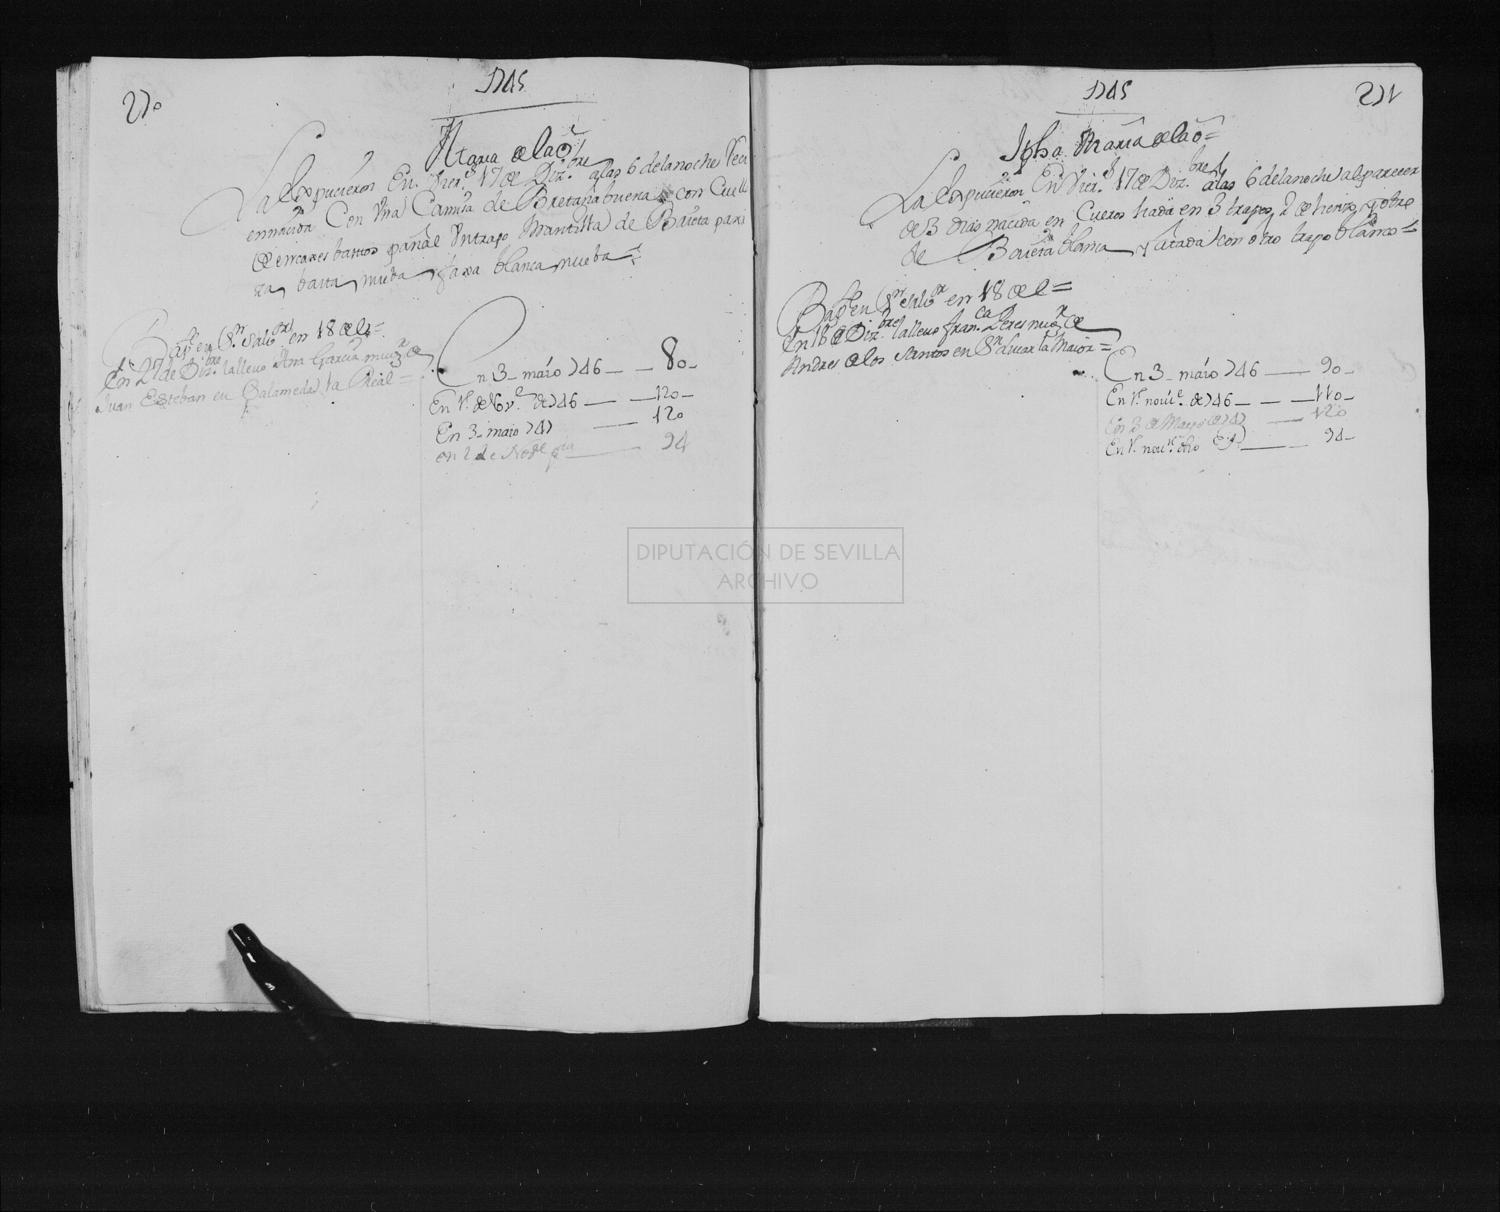 270
1745
Maria de la O
La expucieron En Vier.s 17 de Diz.bre a las 6 de la noche Reci
ennacida Con Vna Camisa de Bretaña buena con Cuello
de encaxes bastos pañal Vn trapo Mantilla de Baieta par
basta nueba faxa blanca nueba =
Bap.e en S.n Salv.or en 18 de el =
En 27 de Diz.bre la llevo Ana Garcia mug.r de
Juan Esteban en Salameda la Real =
En 3 maio 746 — 80
En 1.o de Nov.e de 746 — 120
En 3 maio 747 — 120
en 1 de No.e — 94
271
1745
Jpha Maria de la O =
La expucieron En Vier.s 17 de Diz.bre a las 6 de la noche al parecer
de 3 dias nacida en Cueros liada en 3 trapos 2 de lienzo y otro
de Baieta blanca y atada con otro trapo blanco =
Bap.e en S.n Salv.or en 18 de el =
En 18 de Diz.bre la llevo Fran.ca Peres mug.r de
Andres de los Santos en S.n Lucar la Maior =
En 3 maio 746 — 90
En 1.o nov.e de 746 — 110
En 3 de Mayo de 747 — 120
En 1.o nov.e dho — 94
DIPUTACIÓN DE SEVILLA
ARCHIVO